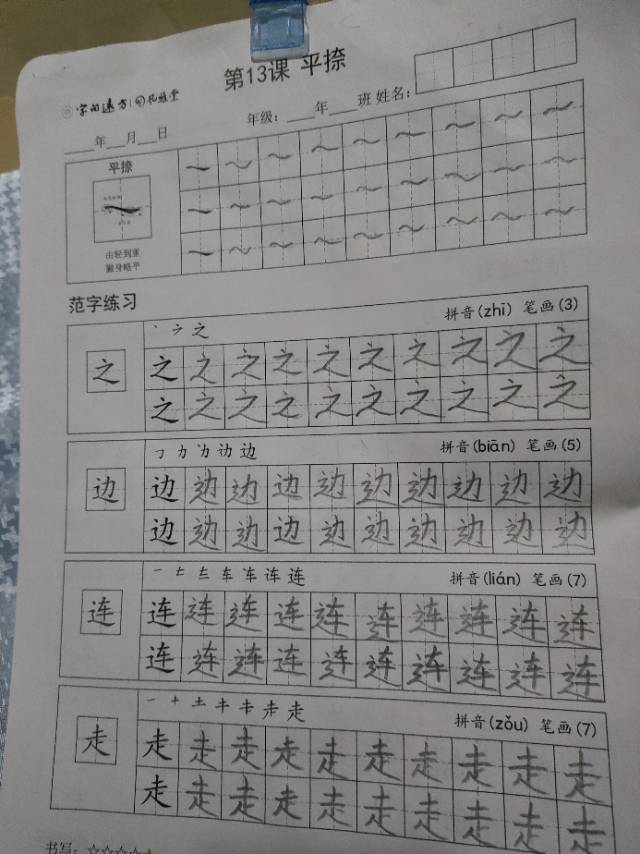 第13课 平捺
字的远方
年级：___年___班 姓名：
____年__月__日
平捺
由轻到重
捺身略平
范字练习
之
丶 ㇇ 之
拼音(zhī) 笔画(3)
之 之 之 之 之 之 之 之 之 之
之 之 之 之 之 之 之 之 之 之
边
㇆ 力 边
拼音(biān) 笔画(5)
边 边 边 边 边 边 边 边 边 边
边 边 边 边 边 边 边 边 边 边
连
一 车 连
拼音(lián) 笔画(7)
连 连 连 连 连 连 连 连 连 连
连 连 连 连 连 连 连 连 连 连
走
一 十 土 走
拼音(zǒu) 笔画(7)
走 走 走 走 走 走 走 走 走 走
走 走 走 走 走 走 走 走 走 走
书写：☆☆☆☆☆